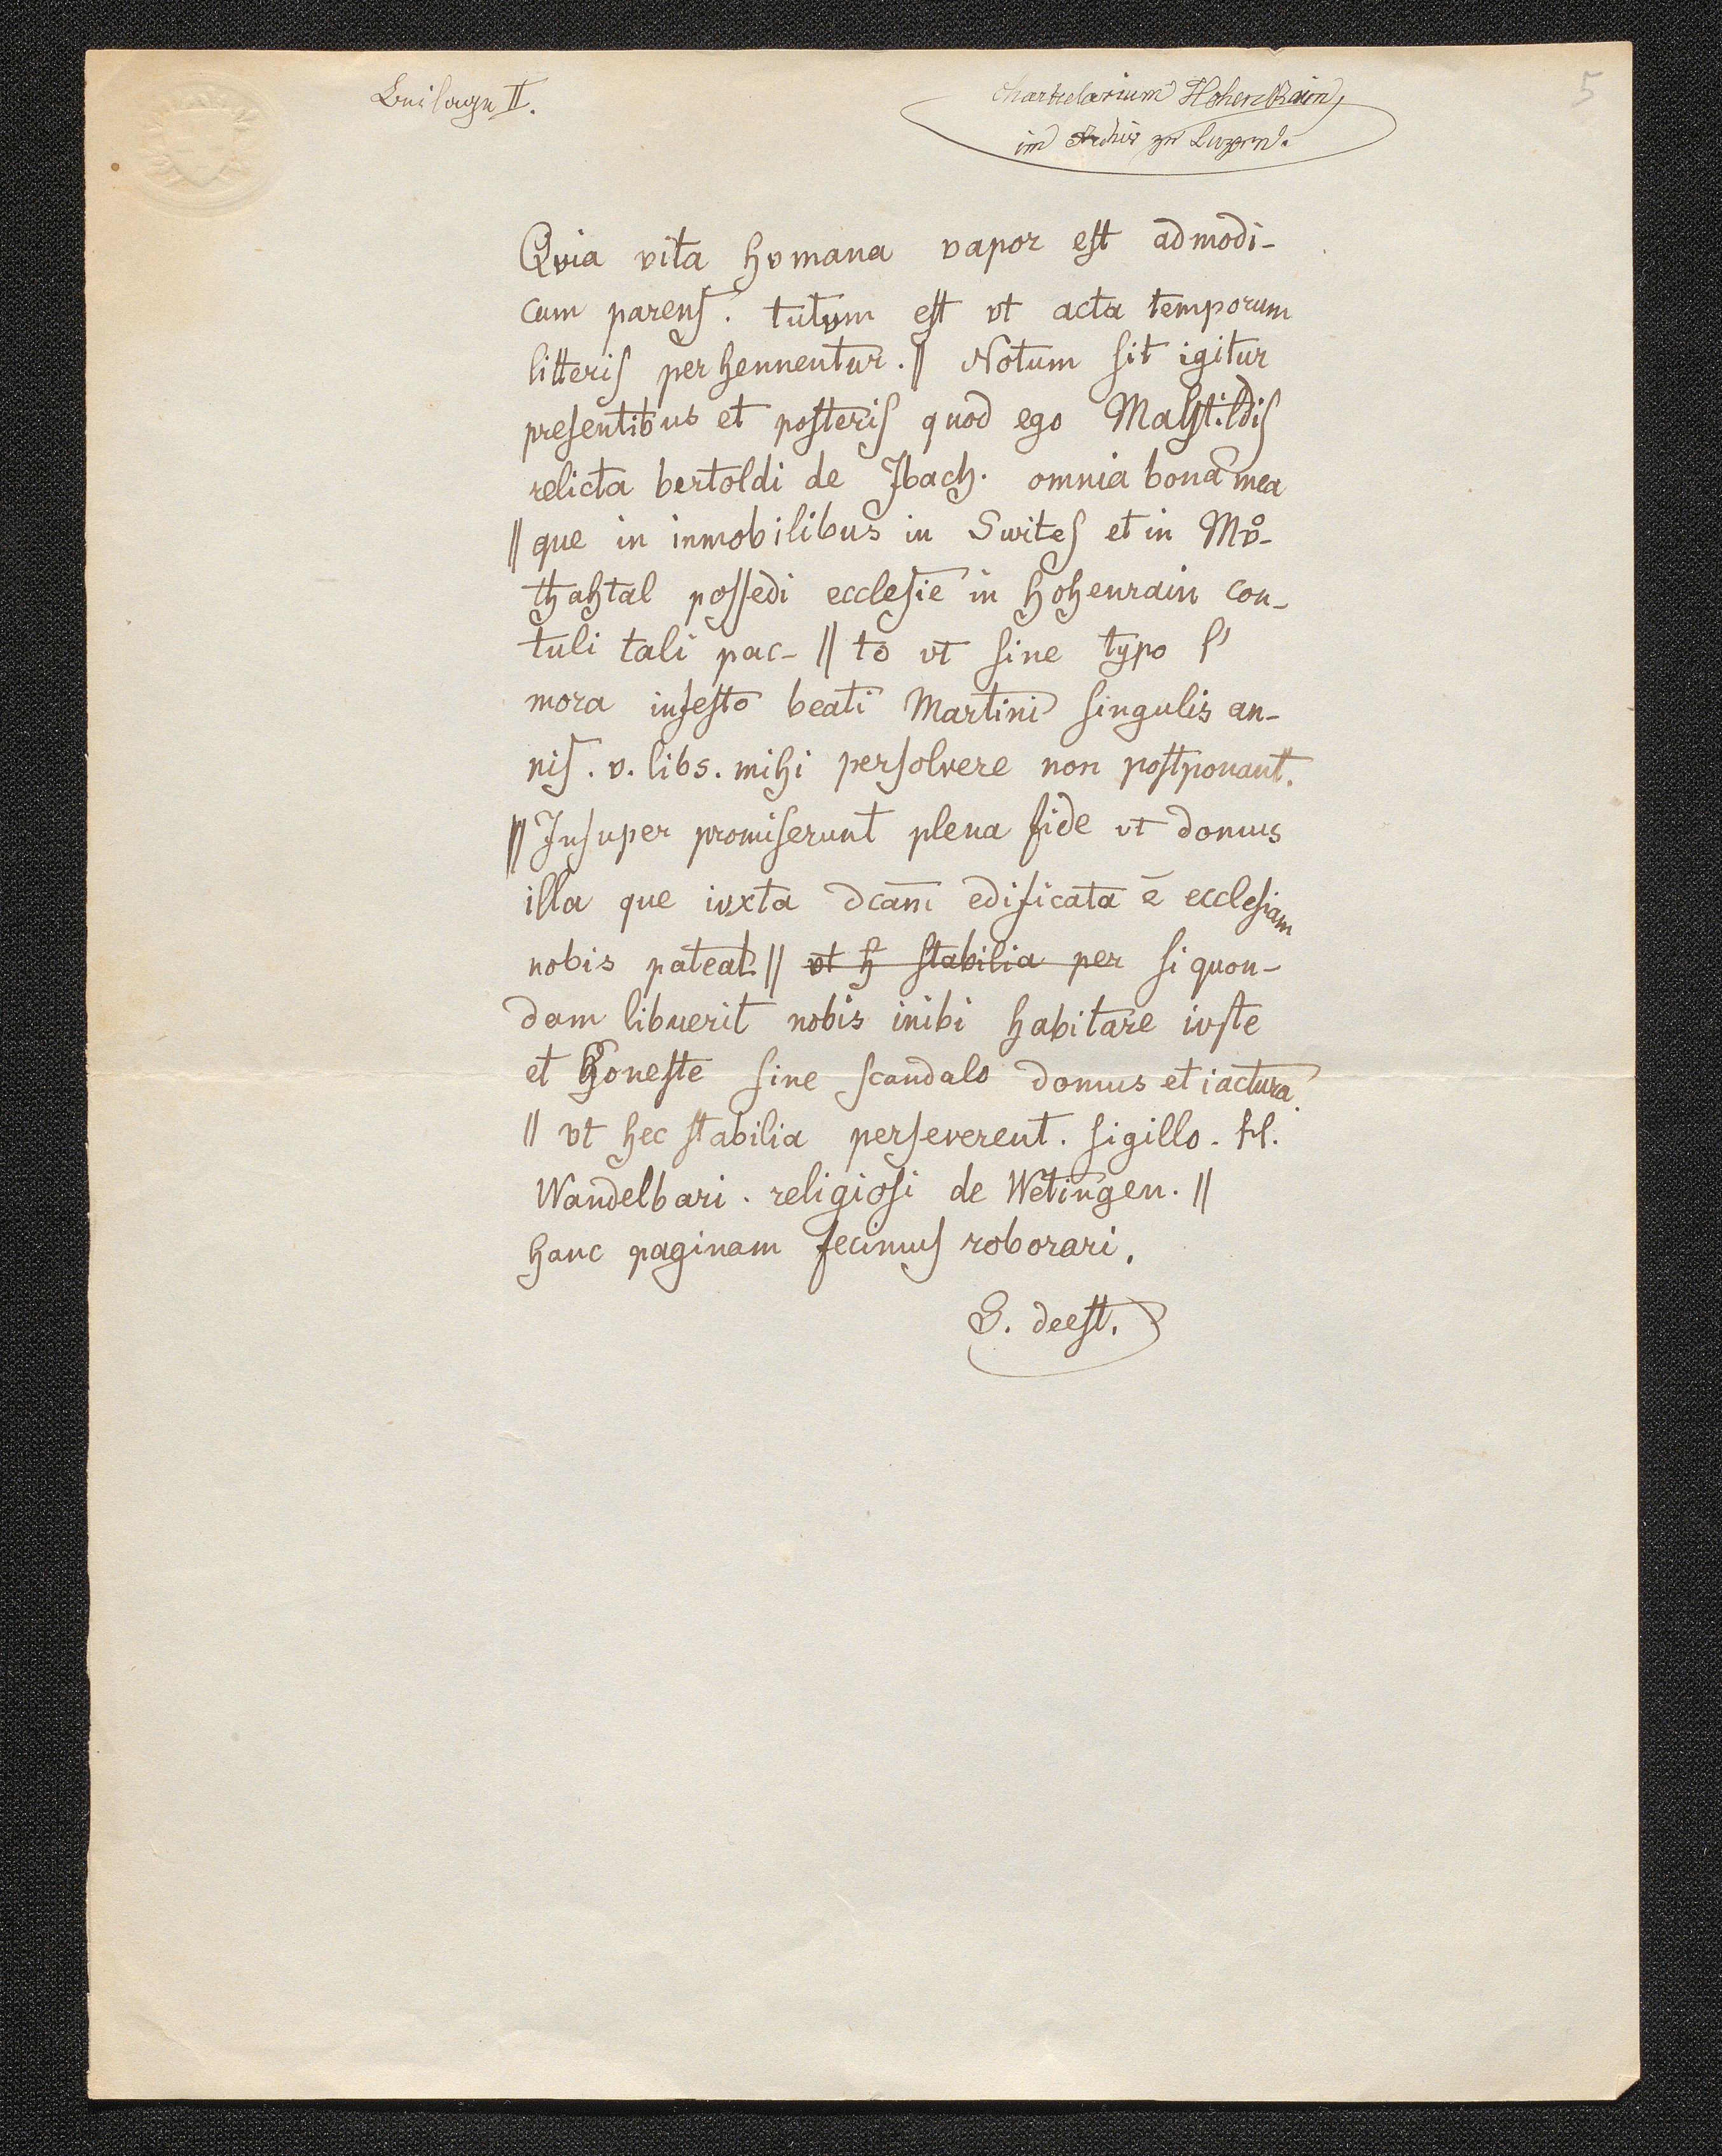 Beilage II.
Chartularium Hohenrain,
im Archiv zu Luzern.
5
Qvia vita hvmana vapor est ad modi-
cum parens. tutvm est vt acta temporum
litteris perhennentur. || Notum sit igitur
presentibus et posteris quod ego Mahtildis
relicta bertoldi de Jbach. omnia bona mea
|| que in inmobilibus in Swites et in Mv̊-
thahtal possedi ecclesie in hohenrain con-
tuli tali pac- || to vt sine typo s'
mora infesto beati Martini singulis an-
nis. v. libs. mihi persolvere non postponant.
|| Insuper promiserunt plena fide vt domus
illa que ivxta dcam̄ edificata ē ecclesiam
nobis pateat. || vt h stabilia per si quon-
dam libuerit nobis inibi habitare ivste
et honeste sine scandalo domus et iactura.
|| vt hec stabilia perseverent. sigillo. H.
Wandelbari. religiosi de Wetingen. ||
hanc paginam fecimus roborari.
S. deest.